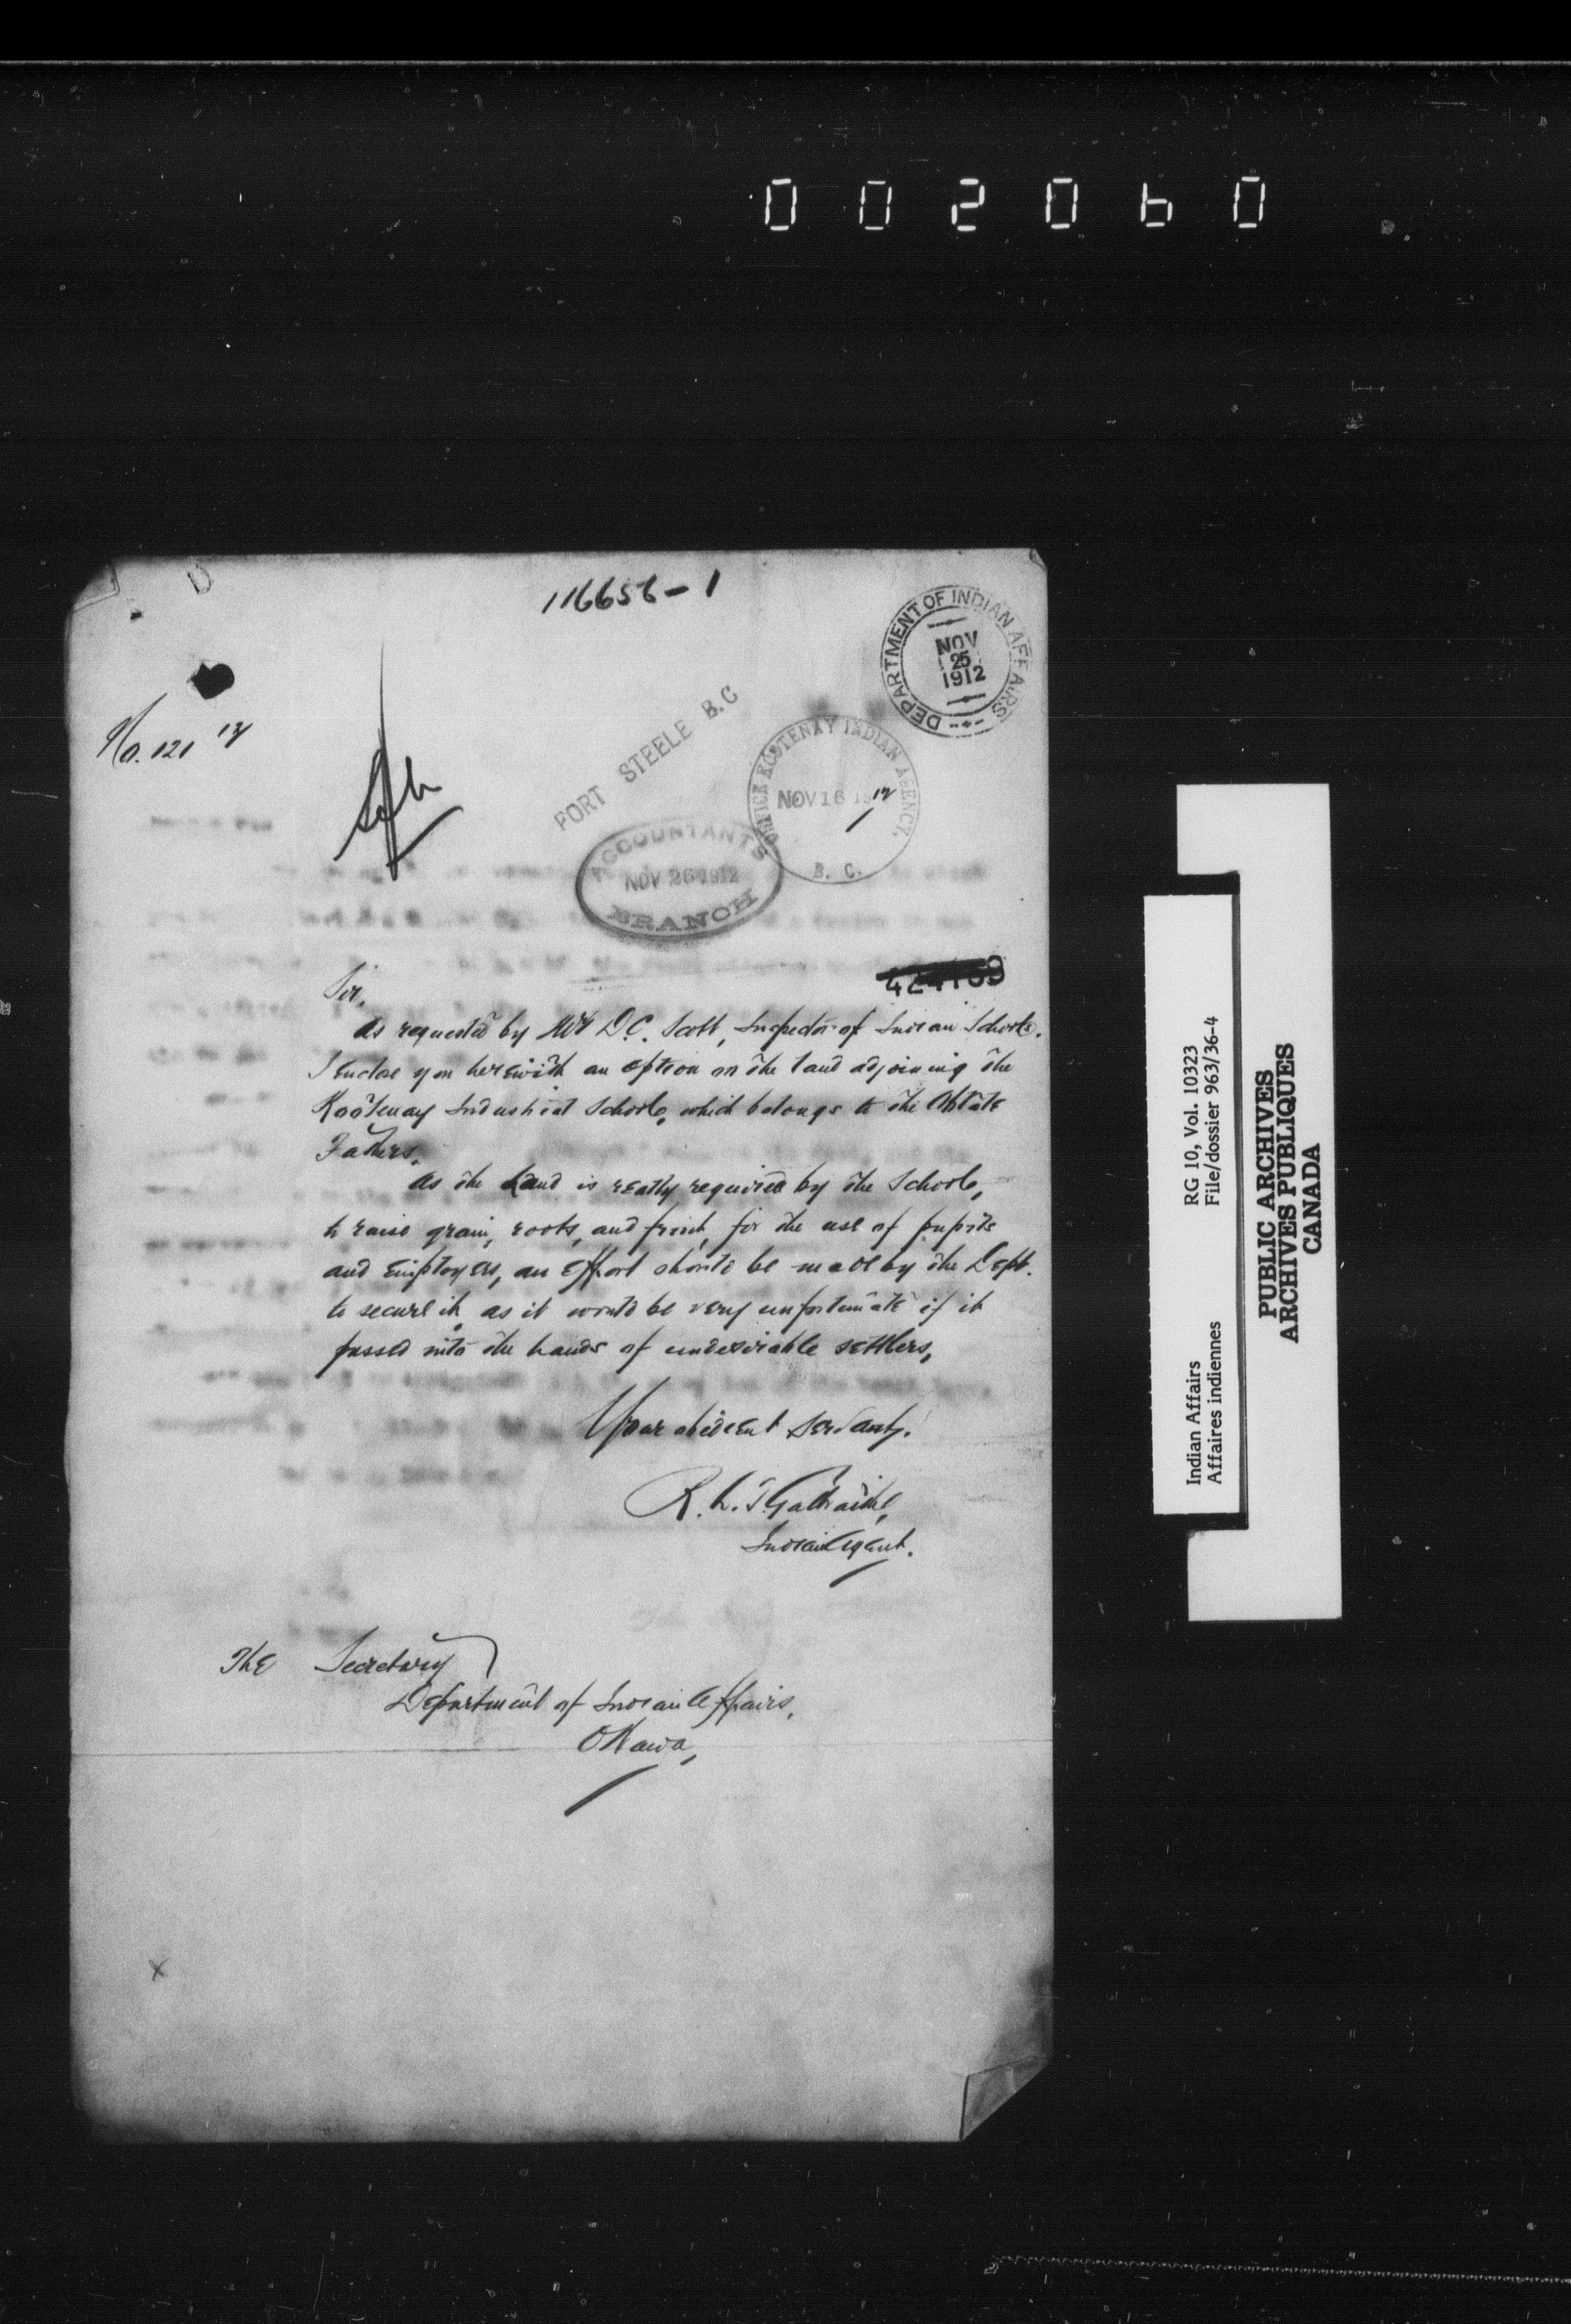 002060
116656-1
DEPARTMENT OF INDIAN AFFAIRS
NOV
25
1912
No. 121 12
FORT STEELE B.C
OFFICE KOOTENAY INDIAN AGENCY.
NOV 16 1912
B. C.
ACCOUNTANTS
NOV 26 1912
BRANCH
Sir,
As requested by Mr D.C. Scott, Inspector of Indian Schools.
I enclose you herewith an option on the land adjoining the
Kootenay Industrial School, which belongs to the Oblate
Fathers.
As the Land is really required by the School,
to raise grain, roots, and fruit, for the use of pupils
and employees, an effort should be made by the Dept.
to secure it, as it would be very unfortunate if it
passed into the hands of undesirable settlers,
Your obedient servant,
R. L. T. Galbraith,
Indian Agent.
The Secretary
Department of Indian Affairs,
Ottawa,
x
Indian Affairs RG 10, Vol. 10323
Affaires indiennes File/dossier 963/36-4
PUBLIC ARCHIVES
ARCHIVES PUBLIQUES
CANADA